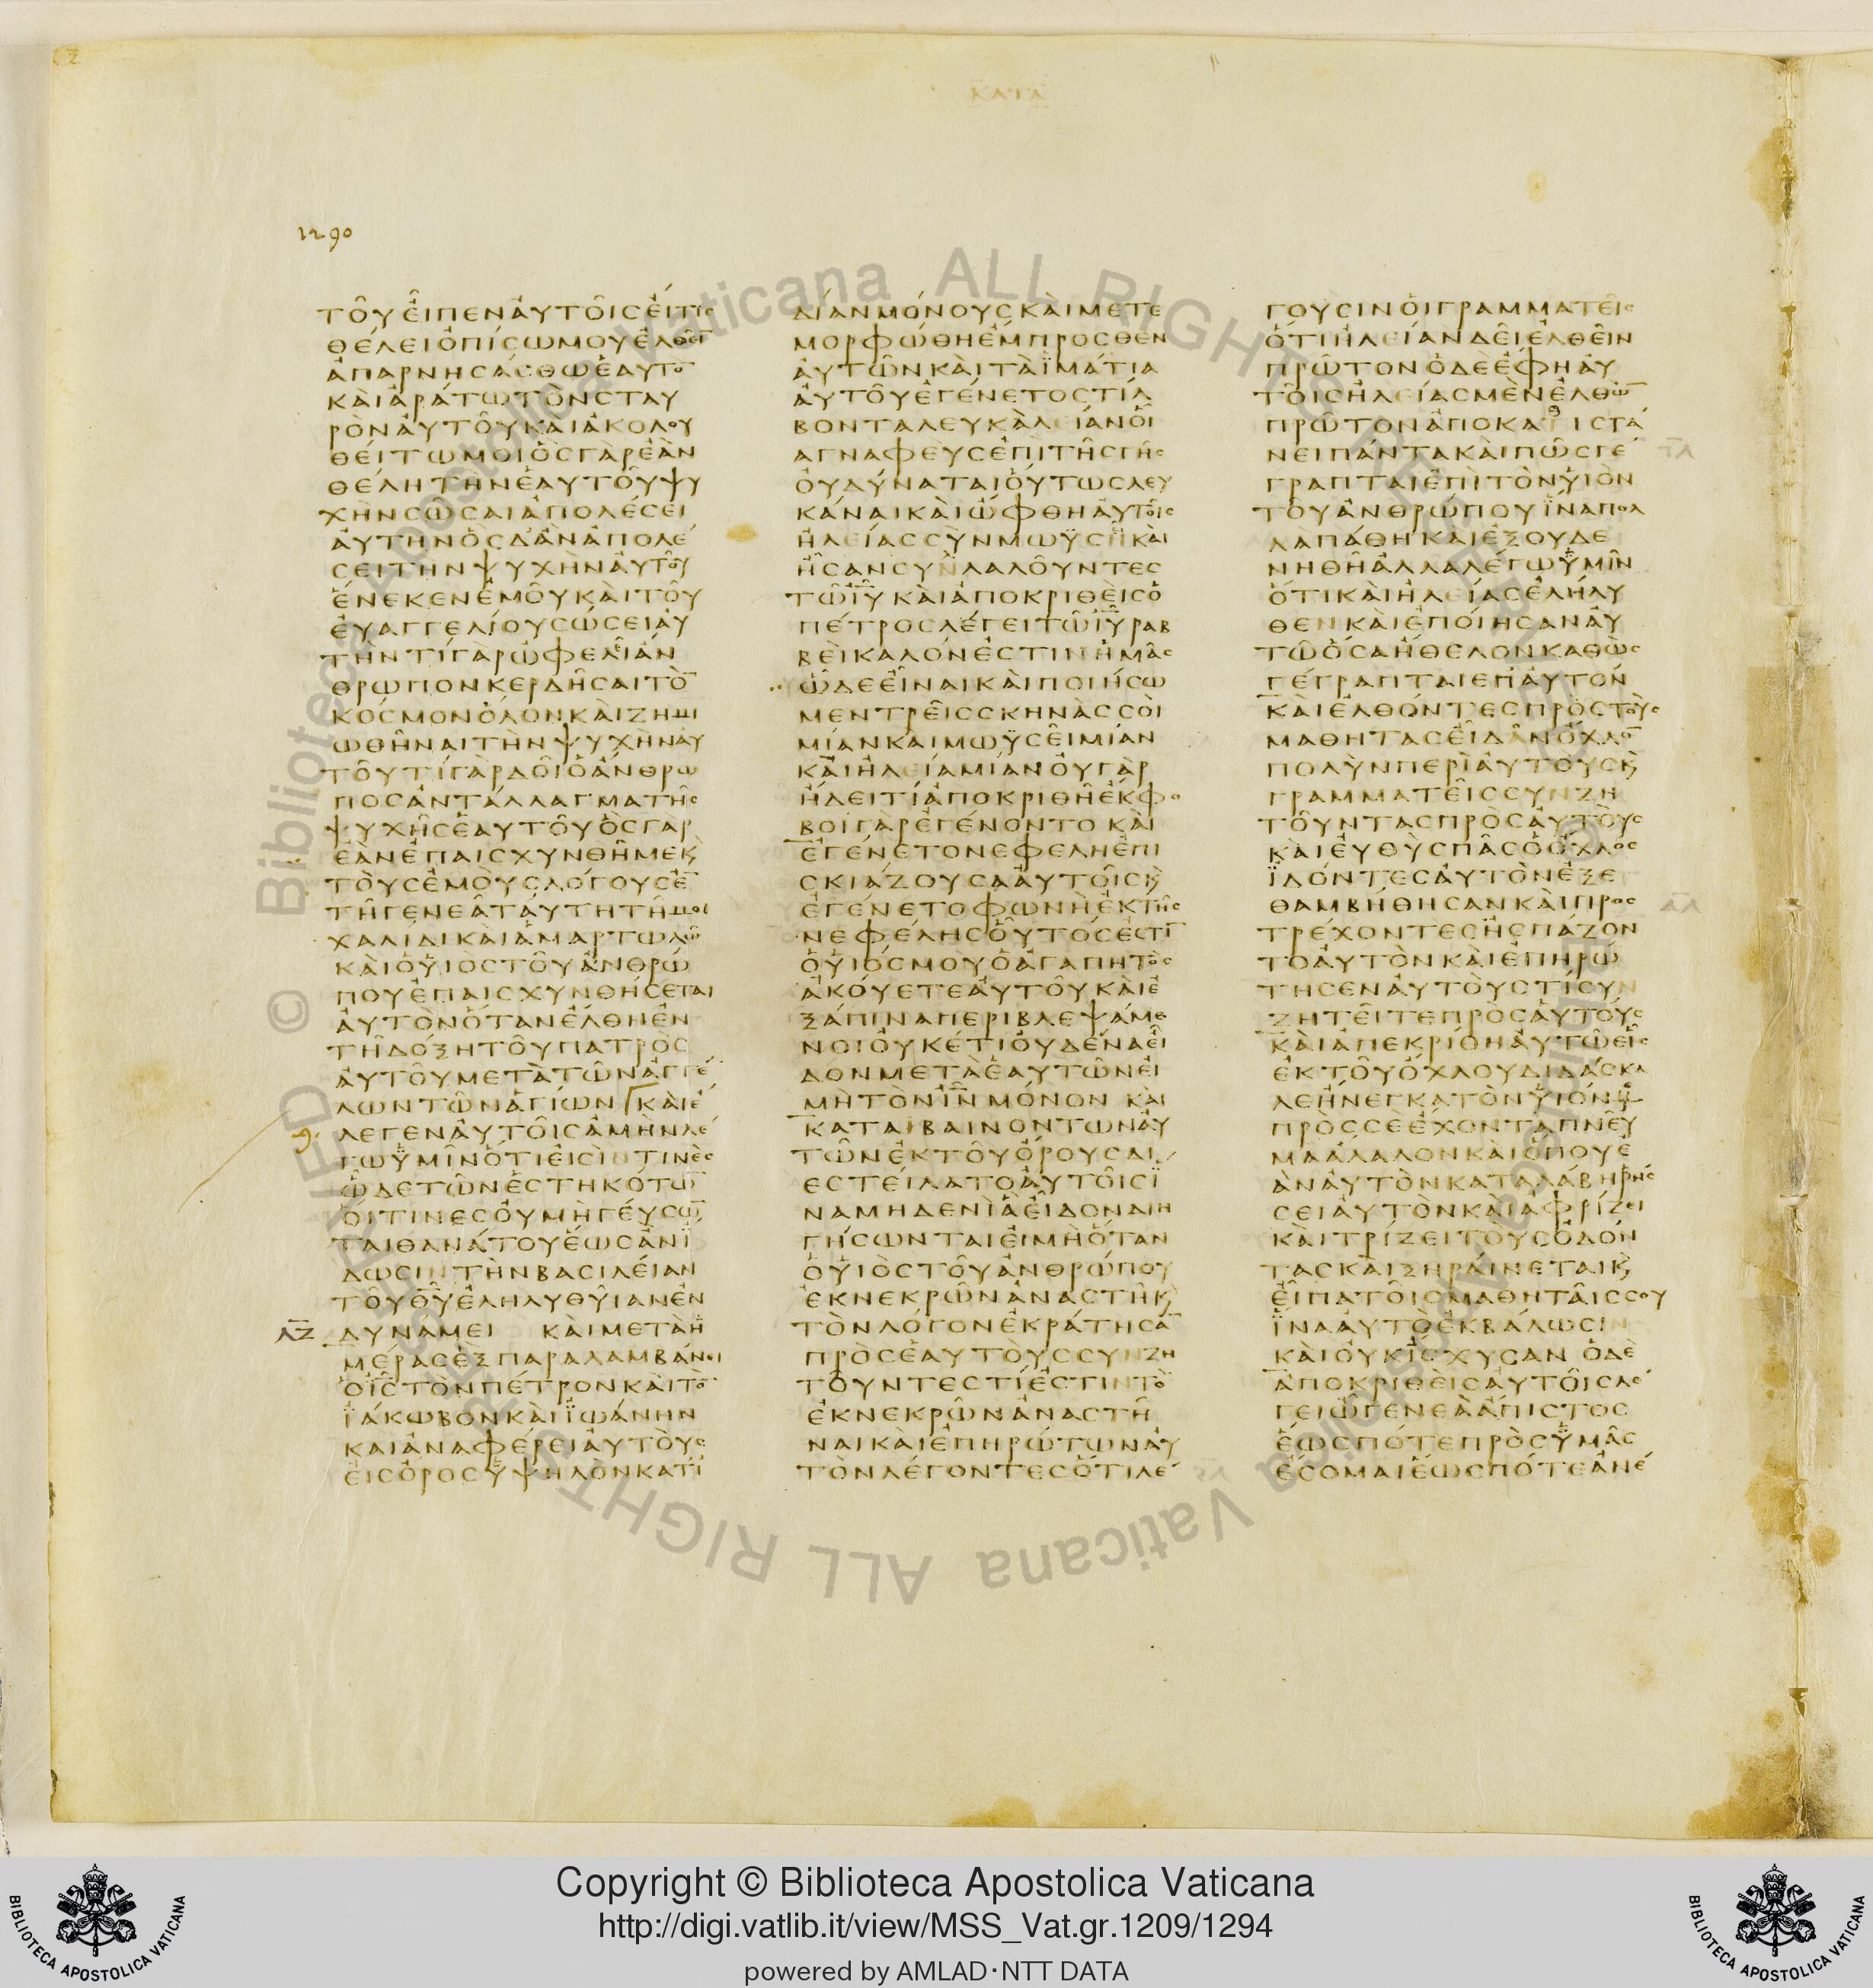 ΚΑΤΑ
1290
ΤΟΥΕΙΠΕΝΑΥΤΟΙΣΕΙΤΙΣ
ΘΕΛΕΙΟΠΙΣΩΜΟΥΕΛΘΕΙ̅
ΑΠΑΡΝΗΣΑΣΘΩΕΑΥΤΟ̅
ΚΑΙΑΡΑΤΩΤΟΝΣΤΑΥ
ΡΟΝΑΥΤΟΥΚΑΙΑΚΟΛΟΥ
ΘΕΙΤΩΜΟΙΟΣΓΑΡΕΑΝ
ΘΕΛΗΤΗΝΕΑΥΤΟΥΨΥ
ΧΗΝΣΩΣΑΙΑΠΟΛΕΣΕΙ
ΑΥΤΗΝΟΣΔΑΝΑΠΟΛΕ
ΣΕΙΤΗΝΨΥΧΗΝΑΥΤΟΥ
ΕΝΕΚΕΝΕΜΟΥΚΑΙΤΟΥ
ΕΥΑΓΓΕΛΙΟΥΣΩΣΕΙΑΥ
ΤΗΝΤΙΓΑΡΩΦΕΛΕΙΑΝ
ΘΡΩΠΟΝΚΕΡΔΗΣΑΙΤΟ̅
ΚΟΣΜΟΝΟΛΟΝΚΑΙΖΗΜΙ
ΩΘΗΝΑΙΤΗΝΨΥΧΗΝΑΥ
ΤΟΥΤΙΓΑΡΔΟΙΟΑΝΘΡΩ
ΠΟΣΑΝΤΑΛΛΑΓΜΑΤΗΣ
ΨΥΧΗΣΕΑΥΤΟΥΟΣΓΑΡ
ΕΑΝΕΠΑΙΣΧΥΝΘΗΜΕΚ
ΤΟΥΣΕΜΟΥΣΛΟΓΟΥΣΕ̅
ΤΗΓΕΝΕΑΤΑΥΤΗΤΗΜΟΙ
ΧΑΛΙΔΙΚΑΙΑΜΑΡΤΩΛΩ
ΚΑΙΟΥΙΟΣΤΟΥΑΝΘΡΩ
ΠΟΥΕΠΑΙΣΧΥΝΘΗΣΕΤΑΙ
ΑΥΤΟΝΟΤΑΝΕΛΘΗΕΝ
ΤΗΔΟΞΗΤΟΥΠΑΤΡΟΣ
ΑΥΤΟΥΜΕΤΑΤΩΝΑΓΓΕ
ΛΩΝΤΩΝΑΓΙΩΝ ΚΑΙΕ
ΛΕΓΕΝΑΥΤΟΙΣΑΜΗΝΛΕ
ΓΩΥΜΙΝΟΤΙΕΙΣΙΝΤΙΝΕΣ
ΩΔΕΤΩΝΕΣΤΗΚΟΤΩ̅
ΟΙΤΙΝΕΣΟΥΜΗΓΕΥΣΩ̅
ΤΑΙΘΑΝΑΤΟΥΕΩΣΑΝΙ
ΔΩΣΙΝΤΗΝΒΑΣΙΛΕΙΑΝ
ΤΟΥΘ̅Υ̅ΕΛΗΛΥΘΥΙΑΝΕΝ
ΛΖ ΔΥΝΑΜΕΙ ΚΑΙΜΕΤΑΗ
ΜΕΡΑΣΕΞΠΑΡΑΛΑΜΒΑΝΕΙ
ΟΙ̅Σ̅ΤΟΝΠΕΤΡΟΝΚΑΙΤΟ̅
ΪΑΚΩΒΟΝΚΑΙΪΩΑΝΗΝ
ΚΑΙΑΝΑΦΕΡΕΙΑΥΤΟΥΣ
ΕΙΣΟΡΟΣΥΨΗΛΟΝΚΑΤΙ
ΔΙΑΝΜΟΝΟΥΣΚΑΙΜΕΤΕ
ΜΟΡΦΩΘΗΕΜΠΡΟΣΘΕΝ
ΑΥΤΩΝΚΑΙΤΑΪΜΑΤΙΑ
ΑΥΤΟΥΕΓΕΝΕΤΟΣΤΙΛ
ΒΟΝΤΑΛΕΥΚΑΛΕΙΑΝΟΙ
ΑΓΝΑΦΕΥΣΕΠΙΤΗΣΓΗΣ
ΟΥΔΥΝΑΤΑΙΟΥΤΩΣΛΕΥ
ΚΑΝΑΙΚΑΙΩΦΘΗΑΥΤΟΙΣ
ΗΛΕΙΑΣΣΥΝΜΩΫΣΗΚΑΙ
ΗΣΑΝΣΥΝΛΑΛΟΥΝΤΕΣ
ΤΩΙ̅Υ̅ΚΑΙΑΠΟΚΡΙΘΕΙΣΟ
ΠΕΤΡΟΣΛΕΓΕΙΤΩΙ̅Υ̅ΡΑΒ
ΒΕΙΚΑΛΟΝΕΣΤΙΝΗΜΑΣ
ΩΔΕΕΙΝΑΙΚΑΙΠΟΙΗΣΩ
ΜΕΝΤΡΕΙΣΣΚΗΝΑΣΣΟΙ
ΜΙΑΝΚΑΙΜΩΫΣΕΙΜΙΑΝ
ΚΑΙΗΛΕΙΑΜΙΑΝΟΥΓΑΡ
ΗΔΕΙΤΙΑΠΟΚΡΙΘΗΕΚΦΟ
ΒΟΙΓΑΡΕΓΕΝΟΝΤΟ ΚΑΙ
ΕΓΕΝΕΤΟΝΕΦΕΛΗΕΠΙ
ΣΚΙΑΖΟΥΣΑΑΥΤΟΙΣΚ
ΕΓΕΝΕΤΟΦΩΝΗΕΚΤΗΣ
ΝΕΦΕΛΗΣΟΥΤΟΣΕΣΤΙ̅
ΟΥΙΟΣΜΟΥΟΑΓΑΠΗΤΟΣ
ΑΚΟΥΕΤΕΑΥΤΟΥΚΑΙΕ
ΞΑΠΙΝΑΠΕΡΙΒΛΕΨΑΜΕ
ΝΟΙΟΥΚΕΤΙΟΥΔΕΝΑΕΙ
ΔΟΝΜΕΤΑΕΑΥΤΩΝΕΙ
ΜΗΤΟΝΙ̅Ν̅ΜΟΝΟΝ ΚΑΙ
ΚΑΤΑΙΒΑΙΝΟΝΤΩΝΑΥ
ΤΩΝΕΚΤΟΥΟΡΟΥΣΔΙ
ΕΣΤΕΙΛΑΤΟΑΥΤΟΙΣΪ
ΝΑΜΗΔΕΝΙΑΕΙΔΟΝΔΙΗ
ΓΗΣΩΝΤΑΙΕΙΜΗΟΤΑΝ
ΟΥΙΟΣΤΟΥΑΝΘΡΩΠΟΥ
ΕΚΝΕΚΡΩΝΑΝΑΣΤΗΚ
ΤΟΝΛΟΓΟΝΕΚΡΑΤΗΣΑ̅
ΠΡΟΣΕΑΥΤΟΥΣΣΥΝΖΗ
ΤΟΥΝΤΕΣΤΙΕΣΤΙΝΤΟ
ΕΚΝΕΚΡΩΝΑΝΑΣΤΗ
ΝΑΙΚΑΙΕΠΗΡΩΤΩΝΑΥ
ΤΟΝΛΕΓΟΝΤΕΣΟΤΙΛΕ
ΓΟΥΣΙΝΟΙΓΡΑΜΜΑΤΕΙΣ
ΟΤΙΗΛΕΙΑΝΔΕΙΕΛΘΕΙΝ
ΠΡΩΤΟΝΟΔΕΕΦΗΑΥ
ΤΟΙΣΗΛΕΙΑΣΜΕΝΕΛΘΩ̅
ΠΡΩΤΟΝΑΠΟΚΑΤΙΣΤΑ
ΝΕΙΠΑΝΤΑΚΑΙΠΩΣΓΕ
ΓΡΑΠΤΑΙΕΠΙΤΟΝΥΙΟΝ
ΤΟΥΑΝΘΡΩΠΟΥΪΝΑΠΟΛ
ΛΑΠΑΘΗΚΑΙΕΞΟΥΔΕ
ΝΗΘΗΑΛΛΑΛΕΓΩΥΜΙΝ
ΟΤΙΚΑΙΗΛΕΙΑΣΕΛΗΛΥ
ΘΕΝΚΑΙΕΠΟΙΗΣΑΝΑΥ
ΤΩΟΣΑΗΘΕΛΟΝΚΑΘΩΣ
ΓΕΓΡΑΠΤΑΙΕΠΑΥΤΟΝ
ΚΑΙΕΛΘΟΝΤΕΣΠΡΟΣΤΟΥΣ
ΜΑΘΗΤΑΣΕΙΔΑΝΟΧΛΟ̅
ΠΟΛΥΝΠΕΡΙΑΥΤΟΥΣΚ
ΓΡΑΜΜΑΤΕΙΣΣΥΝΖΗ
ΤΟΥΝΤΑΣΠΡΟΣΑΥΤΟΥΣ
ΚΑΙΕΥΘΥΣΠΑΣΟΟΧΛΟΣ
ΪΔΟΝΤΕΣΑΥΤΟΝΕΞΕ
ΘΑΜΒΗΘΗΣΑΝΚΑΙΠΡΟΣ
ΤΡΕΧΟΝΤΕΣΗΣΠΑΖΟΝ
ΤΟΑΥΤΟΝΚΑΙΕΠΗΡΩ
ΤΗΣΕΝΑΥΤΟΥΣΤΙΣΥΝ
ΖΗΤΕΙΤΕΠΡΟΣΑΥΤΟΥΣ
ΚΑΙΑΠΕΚΡΙΘΗΑΥΤΩΕΙΣ
ΕΚΤΟΥΟΧΛΟΥΔΙΔΑΣΚΑ
ΛΕΗΝΕΓΚΑΤΟΝΥΙΟΝΜΟΥ
ΠΡΟΣΣΕΕΧΟΝΤΑΠΝΕΥ
ΜΑΑΛΑΛΟΝΚΑΙΟΠΟΥΕ
ΑΝΑΥΤΟΝΚΑΤΑΛΑΒΗΡΗΣ
ΣΕΙΑΥΤΟΝΚΑΙΑΦΡΙΖΕΙ
ΚΑΙΤΡΙΖΕΙΤΟΥΣΟΔΟΝ
ΤΑΣΚΑΙΞΗΡΑΙΝΕΤΑΙΚ
ΕΙΠΑΤΟΙΣΜΑΘΗΤΑΙΣΣΟΥ
ΪΝΑΑΥΤΟΕΚΒΑΛΩΣΙΝ
ΚΑΙΟΥΚΙΣΧΥΣΑΝ ΟΔΕ
ΑΠΟΚΡΙΘΕΙΣΑΥΤΟΙΣΛΕ
ΓΕΙΩΓΕΝΕΑΑΠΙΣΤΟΣ
ΕΩΣΠΟΤΕΠΡΟΣΥΜΑΣ
ΕΣΟΜΑΙΕΩΣΠΟΤΕΑΝΕ
© Biblioteca Apostolica Vaticana ALL RIGHTS RESERVED
Copyright © Biblioteca Apostolica Vaticana
http://digi.vatlib.it/view/MSS_Vat.gr.1209/1294
powered by AMLAD·NTT DATA
BIBLIOTECA APOSTOLICA VATICANA
BIBLIOTECA APOSTOLICA VATICANA